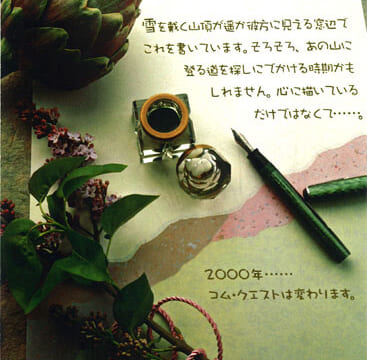 雪を戴く山頂が遥か彼方に見える窓辺で
これを書いています。そろそろ、あの山に
登る道を探しにでかける時期かも
しれません。心に描いている
だけではなくて……。
2000年……
コム・クエストは変わります。